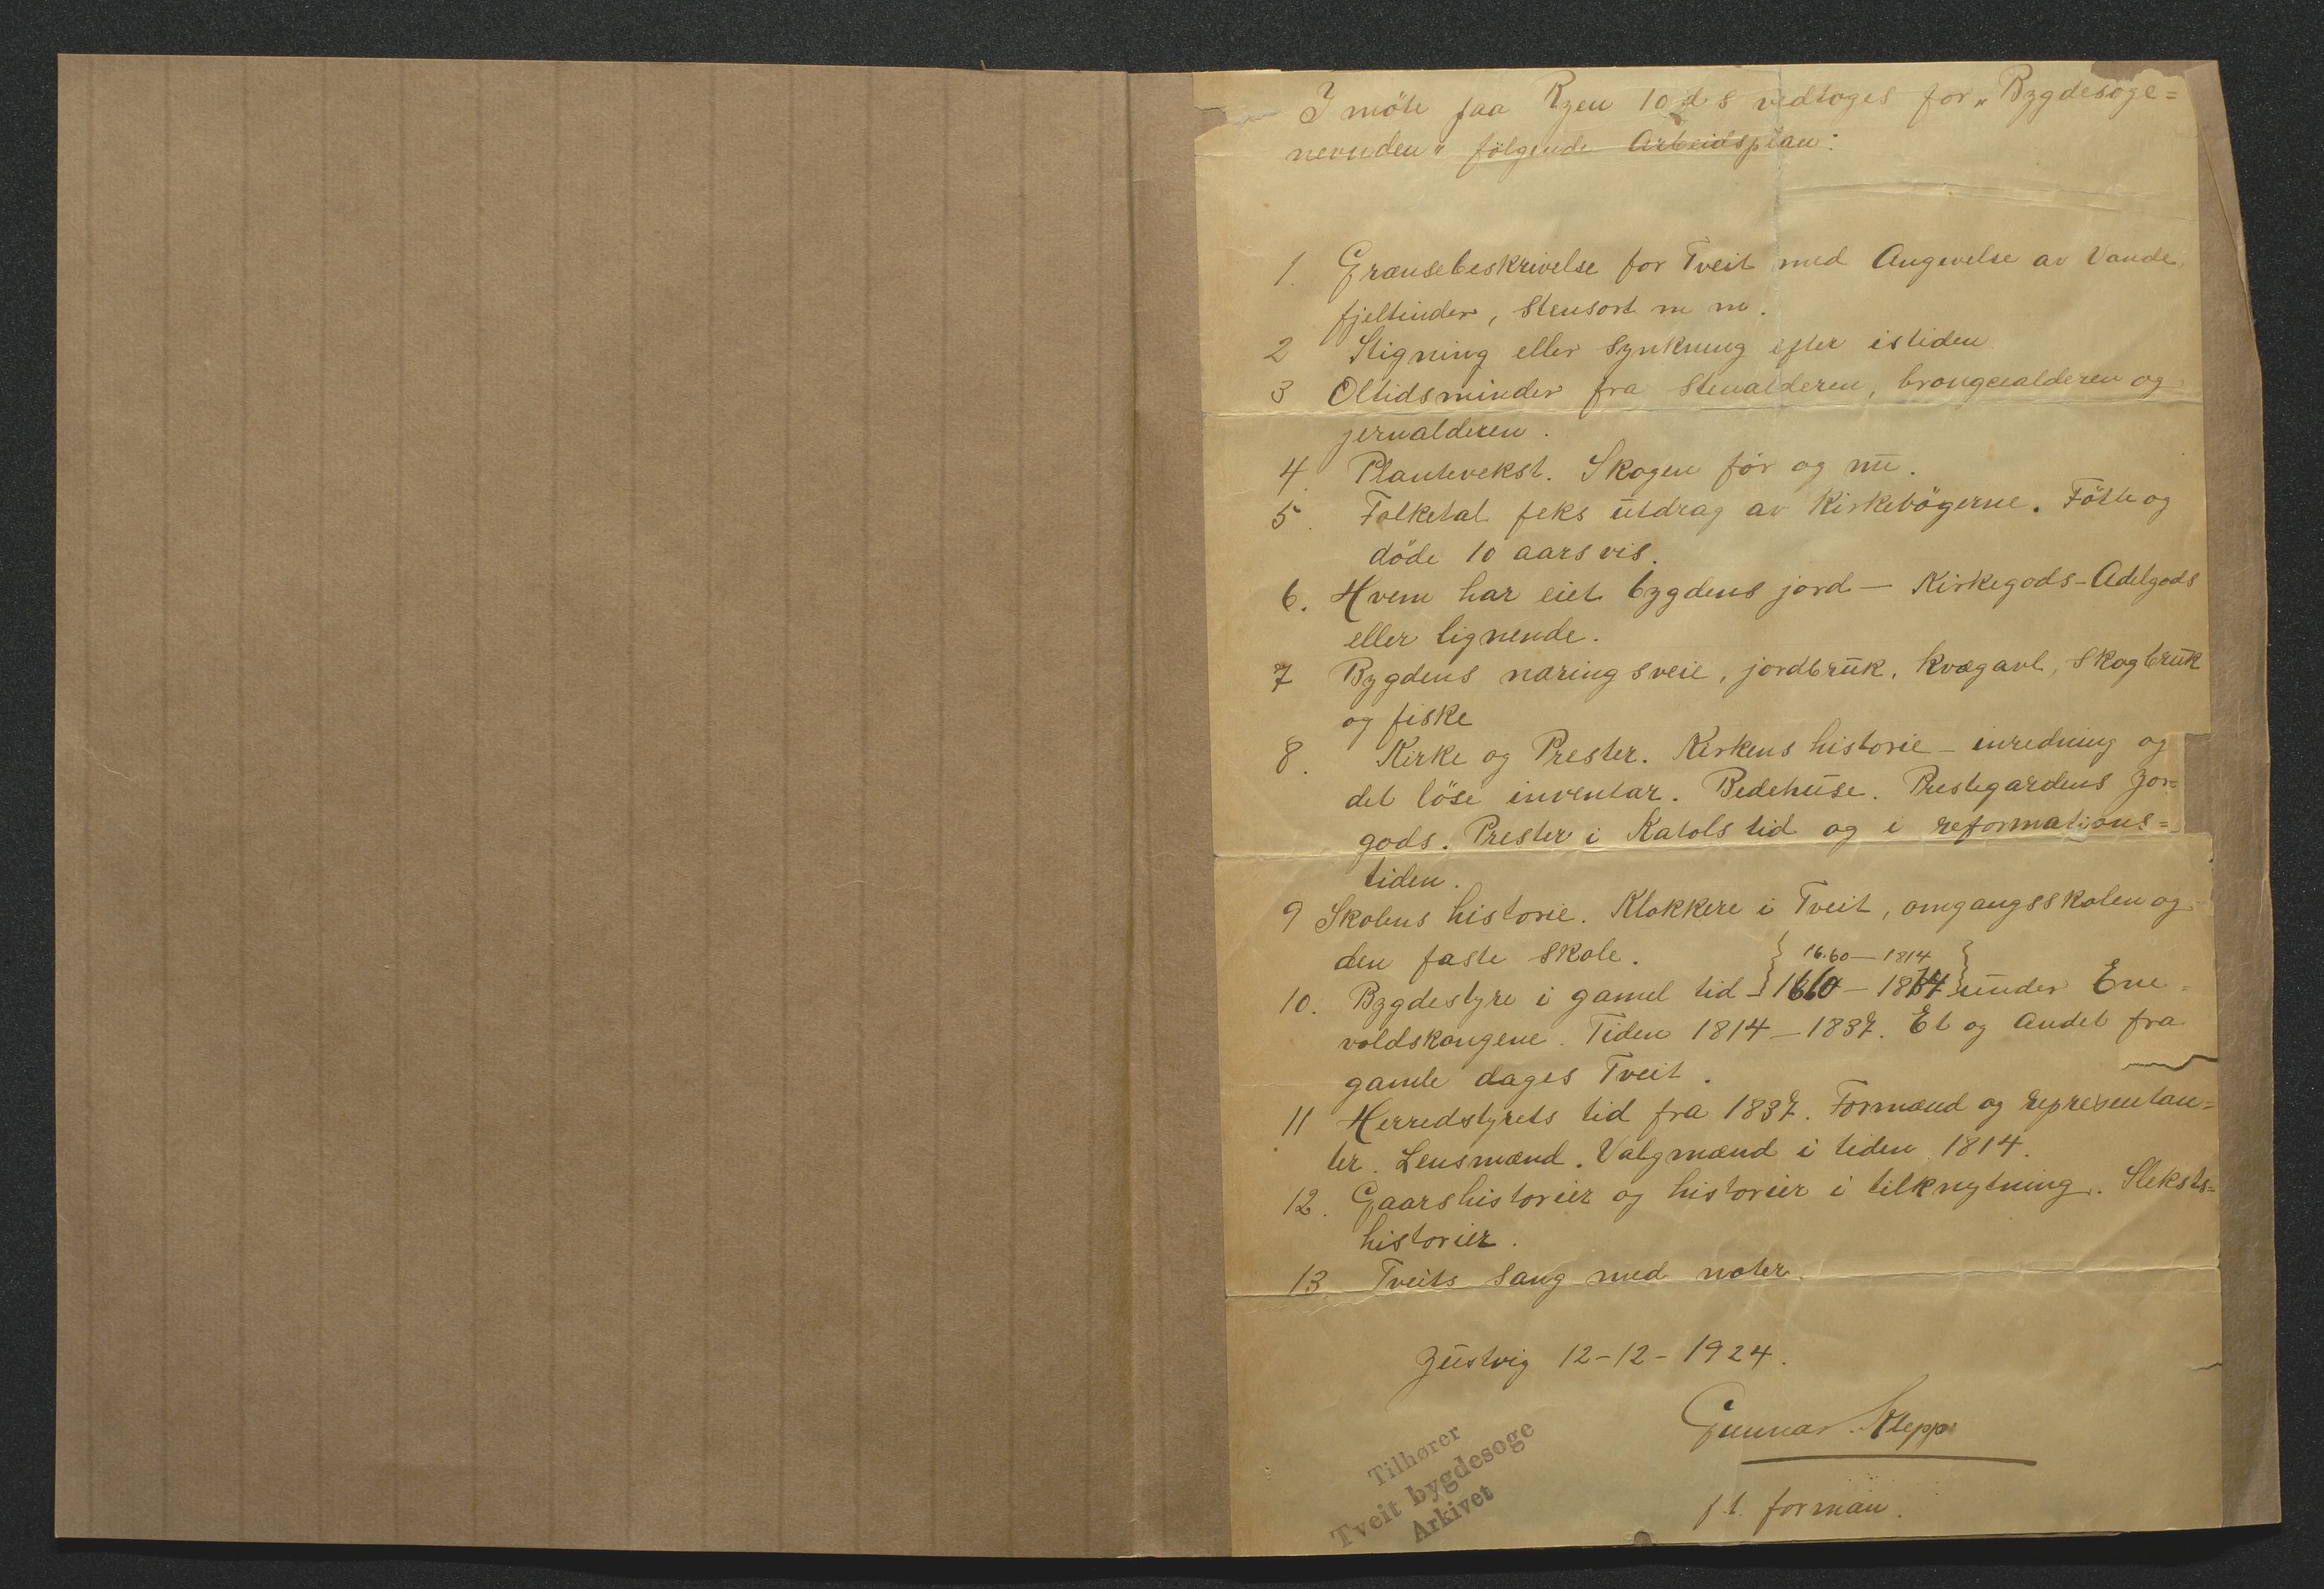 I möte paa Ryen 10 ds vedtoges for „Bygdesoge=
nevnden" fölgende Arbeidsplan:
1. Grænsebeskrivelse for Tveit med Angivelse av Vande,
fjeltinder, Stensort m m.
2 Stigning eller Synkning efter istiden
3 Oltidsminder fra Stenalderen, brongcealderen og
jernalderen.
4. Plantevekst. Skogen för og nu.
5. Folketal feks utdrag av Kirkebögerne. Fötte og
döde 10 aarsvis.
6. Hvem har eiet bygdens jord — Kirkegods - Adelgods
eller lignende.
7 Bygdens næringsveie, jordbruk, Kvægavl, Skogbruk
og fiske
8. Kirke og Prester. Kirkens historie - inredning og
det löse inventar. Bedehuse. Prestegardens Jor=
gods. Prester i Katolstid og i reformations=
tiden.
9 Skolens historie. Klokkere i Tveit, omgangsskolen og
den faste Skole.
16.60 — 1814
10. Bygdestyre i gamel tid 1660 - 1814 under Ene=
voldskongene. Tiden 1814 - 1837. Et og Andet fra
gamle dages Tveit.
11 Herredstyrets tid fra 1837. Formænd og representan=
ter. Lensmænd. Valgmænd i tiden 1814.
12. Gaarshistorier og historier i tilknytning. Sleksts=
historier.
13. Tveits Sang med noter.
Justvig 12-12-1924.
Gunnar Klepp
f.t. forman.
Tilhører
Tveit bygdesoge
Arkivet